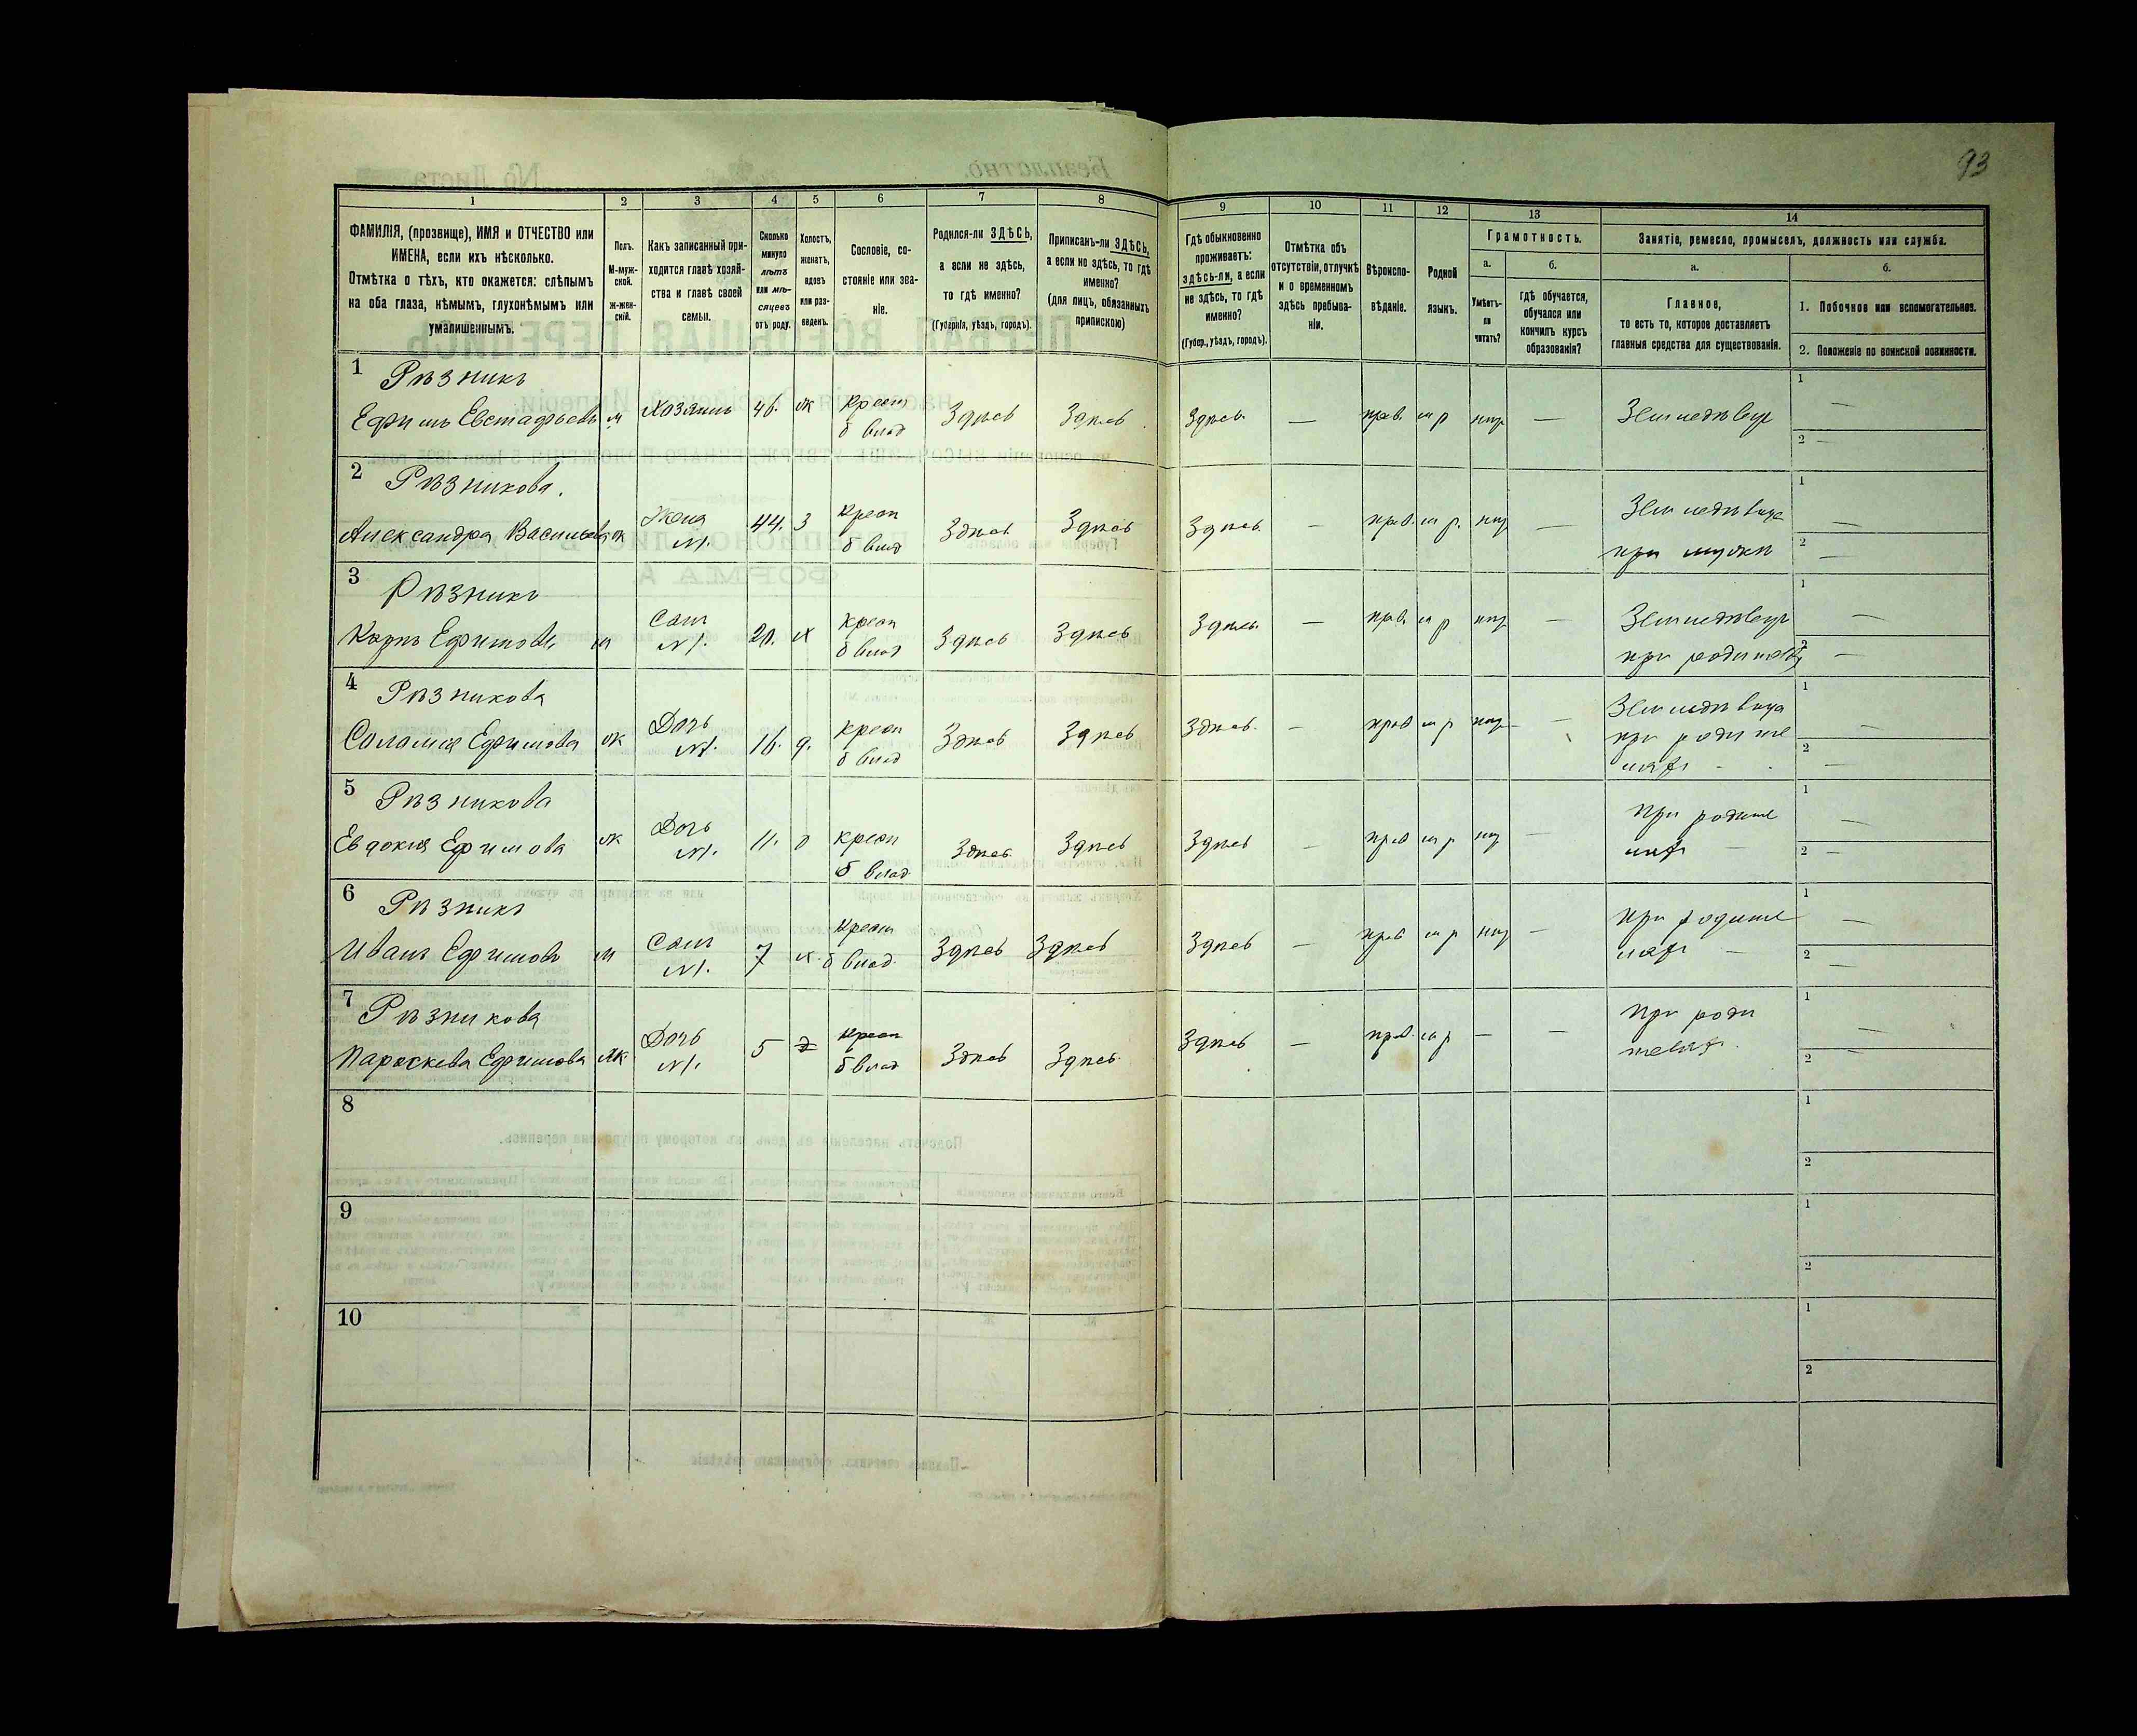 93
1 2 3 4 5 6 7 8 9 10 11 12 13 14
ФАМИЛІЯ, (прозвище), ИМЯ и ОТЧЕСТВО или
ИМЕНА, если ихъ нѣсколько.
Отмѣтка о тѣхъ, кто окажется: слѣпымъ
на оба глаза, нѣмымъ, глухонѣмымъ или
умалишеннымъ.
Полъ.
М-муж-
ской.
Ж-жен-
скій.
Какъ записанный при-
ходится главѣ хозяй-
ства и главѣ своей
семьи.
Сколько
минуло
лѣтъ
или мѣ-
сяцевъ
отъ роду.
Холостъ,
женатъ,
вдовъ
или раз-
веденъ.
Сословіе, со-
стояніе или зва-
ніе.
Родился-ли ЗДѢСЬ,
а если не здѣсь,
то гдѣ именно?
(Губернія, уѣздъ, городъ).
Приписанъ-ли ЗДѢСЬ,
а если не здѣсь, то гдѣ
именно?
(для лицъ, обязанныхъ
припискою)
Гдѣ обыкновенно
проживаетъ:
здѣсь-ли, а если
не здѣсь, то гдѣ
именно?
(Губер., уѣздъ, городъ).
Отмѣтка объ
отсутствіи, отлучкѣ
и о временномъ
здѣсь пребыва-
ніи.
Вѣроиспо-
вѣданіе.
Родной
языкъ.
Грамотность.
а.
Умѣетъ-
ли
читать?
б.
гдѣ обучается,
обучался или
кончилъ курсъ
образованія?
Занятіе, ремесло, промыселъ, должность или служба.
а.
Главное,
то есть то, которое доставляетъ
главныя средства для существованія.
б.
1. Побочное или вспомогательное.
2. Положеніе по воинской повинности.
1 Рѣзникъ
Ефимъ Евстафьевъ м Хозяинъ 46. ж крест б влад Здѣсь Здѣсь Здѣсь — прав. м р нѣт — Земледѣлец 1 — 2 —
2 Рѣзникова.
Александра Васильева ж Жена №1. 44. З крест б влад Здѣсь Здѣсь Здѣсь — прав. м р. нѣт — Земледѣлица при мужѣ 1 — 2 —
3 Рѣзникъ
Карпъ Ефимовъ м Сын №1. 20. х крест б влад Здѣсь Здѣсь Здѣсь — прав. м р нѣт — Земледѣлец 1 — 2 —
4 Рѣзникова
Соломія Ефимова ж Дочь №1. 16. д. крест б влад Здѣсь Здѣсь Здѣсь — прав м р нѣт — Земледѣлица при родителях 1 — 2 —
5 Рѣзникова
Евдокія Ефимова ж Дочь №1. 11. д крест б влад Здѣсь Здѣсь Здѣсь — прав м р нѣт — При родителях — 1 — 2 —
6 Рѣзникъ
Иванъ Ефимовъ м Сын №1. 7 х. крест б влад. Здѣсь Здѣсь Здѣсь — прав м р нѣт — при родителях — 1 — 2 —
7 Рѣзникова
Параскева Ефимова ж Дочь №1. 5 д крест б влад Здѣсь Здѣсь Здѣсь — прав. м р — — При родителях. 1 — 2 —
8 1 2
9 1 2
10 1 2